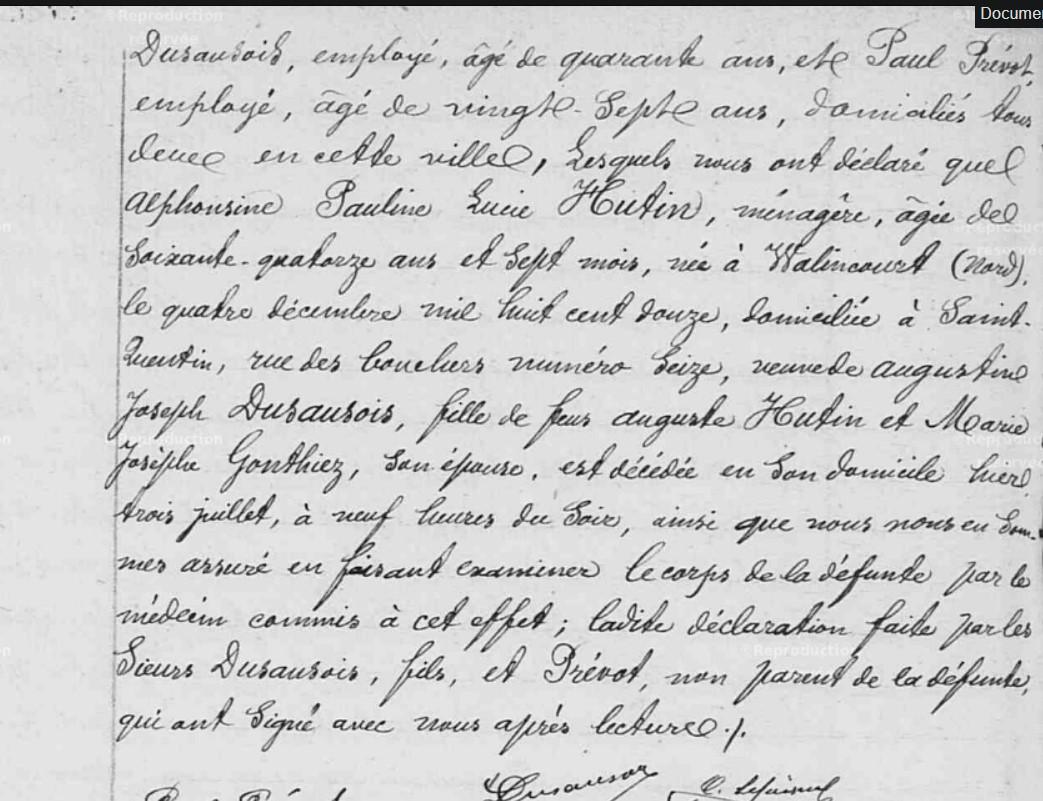 Documen
Dusausois, employé, âgé de quarante ans, et Paul Prévot,
employé, âgé de vingt-sept ans, domiciliés tous
deux en cette ville, Lesquels nous ont déclaré que
Alphonsine Pauline Lucie Hutin, ménagère, âgée de
soixante-quatorze ans et sept mois, née à Walincourt (Nord),
le quatre décembre mil huit cent douze, domiciliée à Saint-
Quentin, rue des bouchers numéro seize, veuve de augustin
Joseph Dusausois, fille de feus auguste Hutin et Marie
Josèphe Gonthiez, son épouse, est décédée en son domicile hier
trois juillet, à neuf heures du soir, ainsi que nous nous en som-
mes assuré en faisant examiner le corps de la défunte par le
médecin commis à cet effet; ladite déclaration faite par les
sieurs Dusausois, fils, et Prévot, non parent de la défunte,
qui ont signé avec nous après lecture ./.
Dusausois